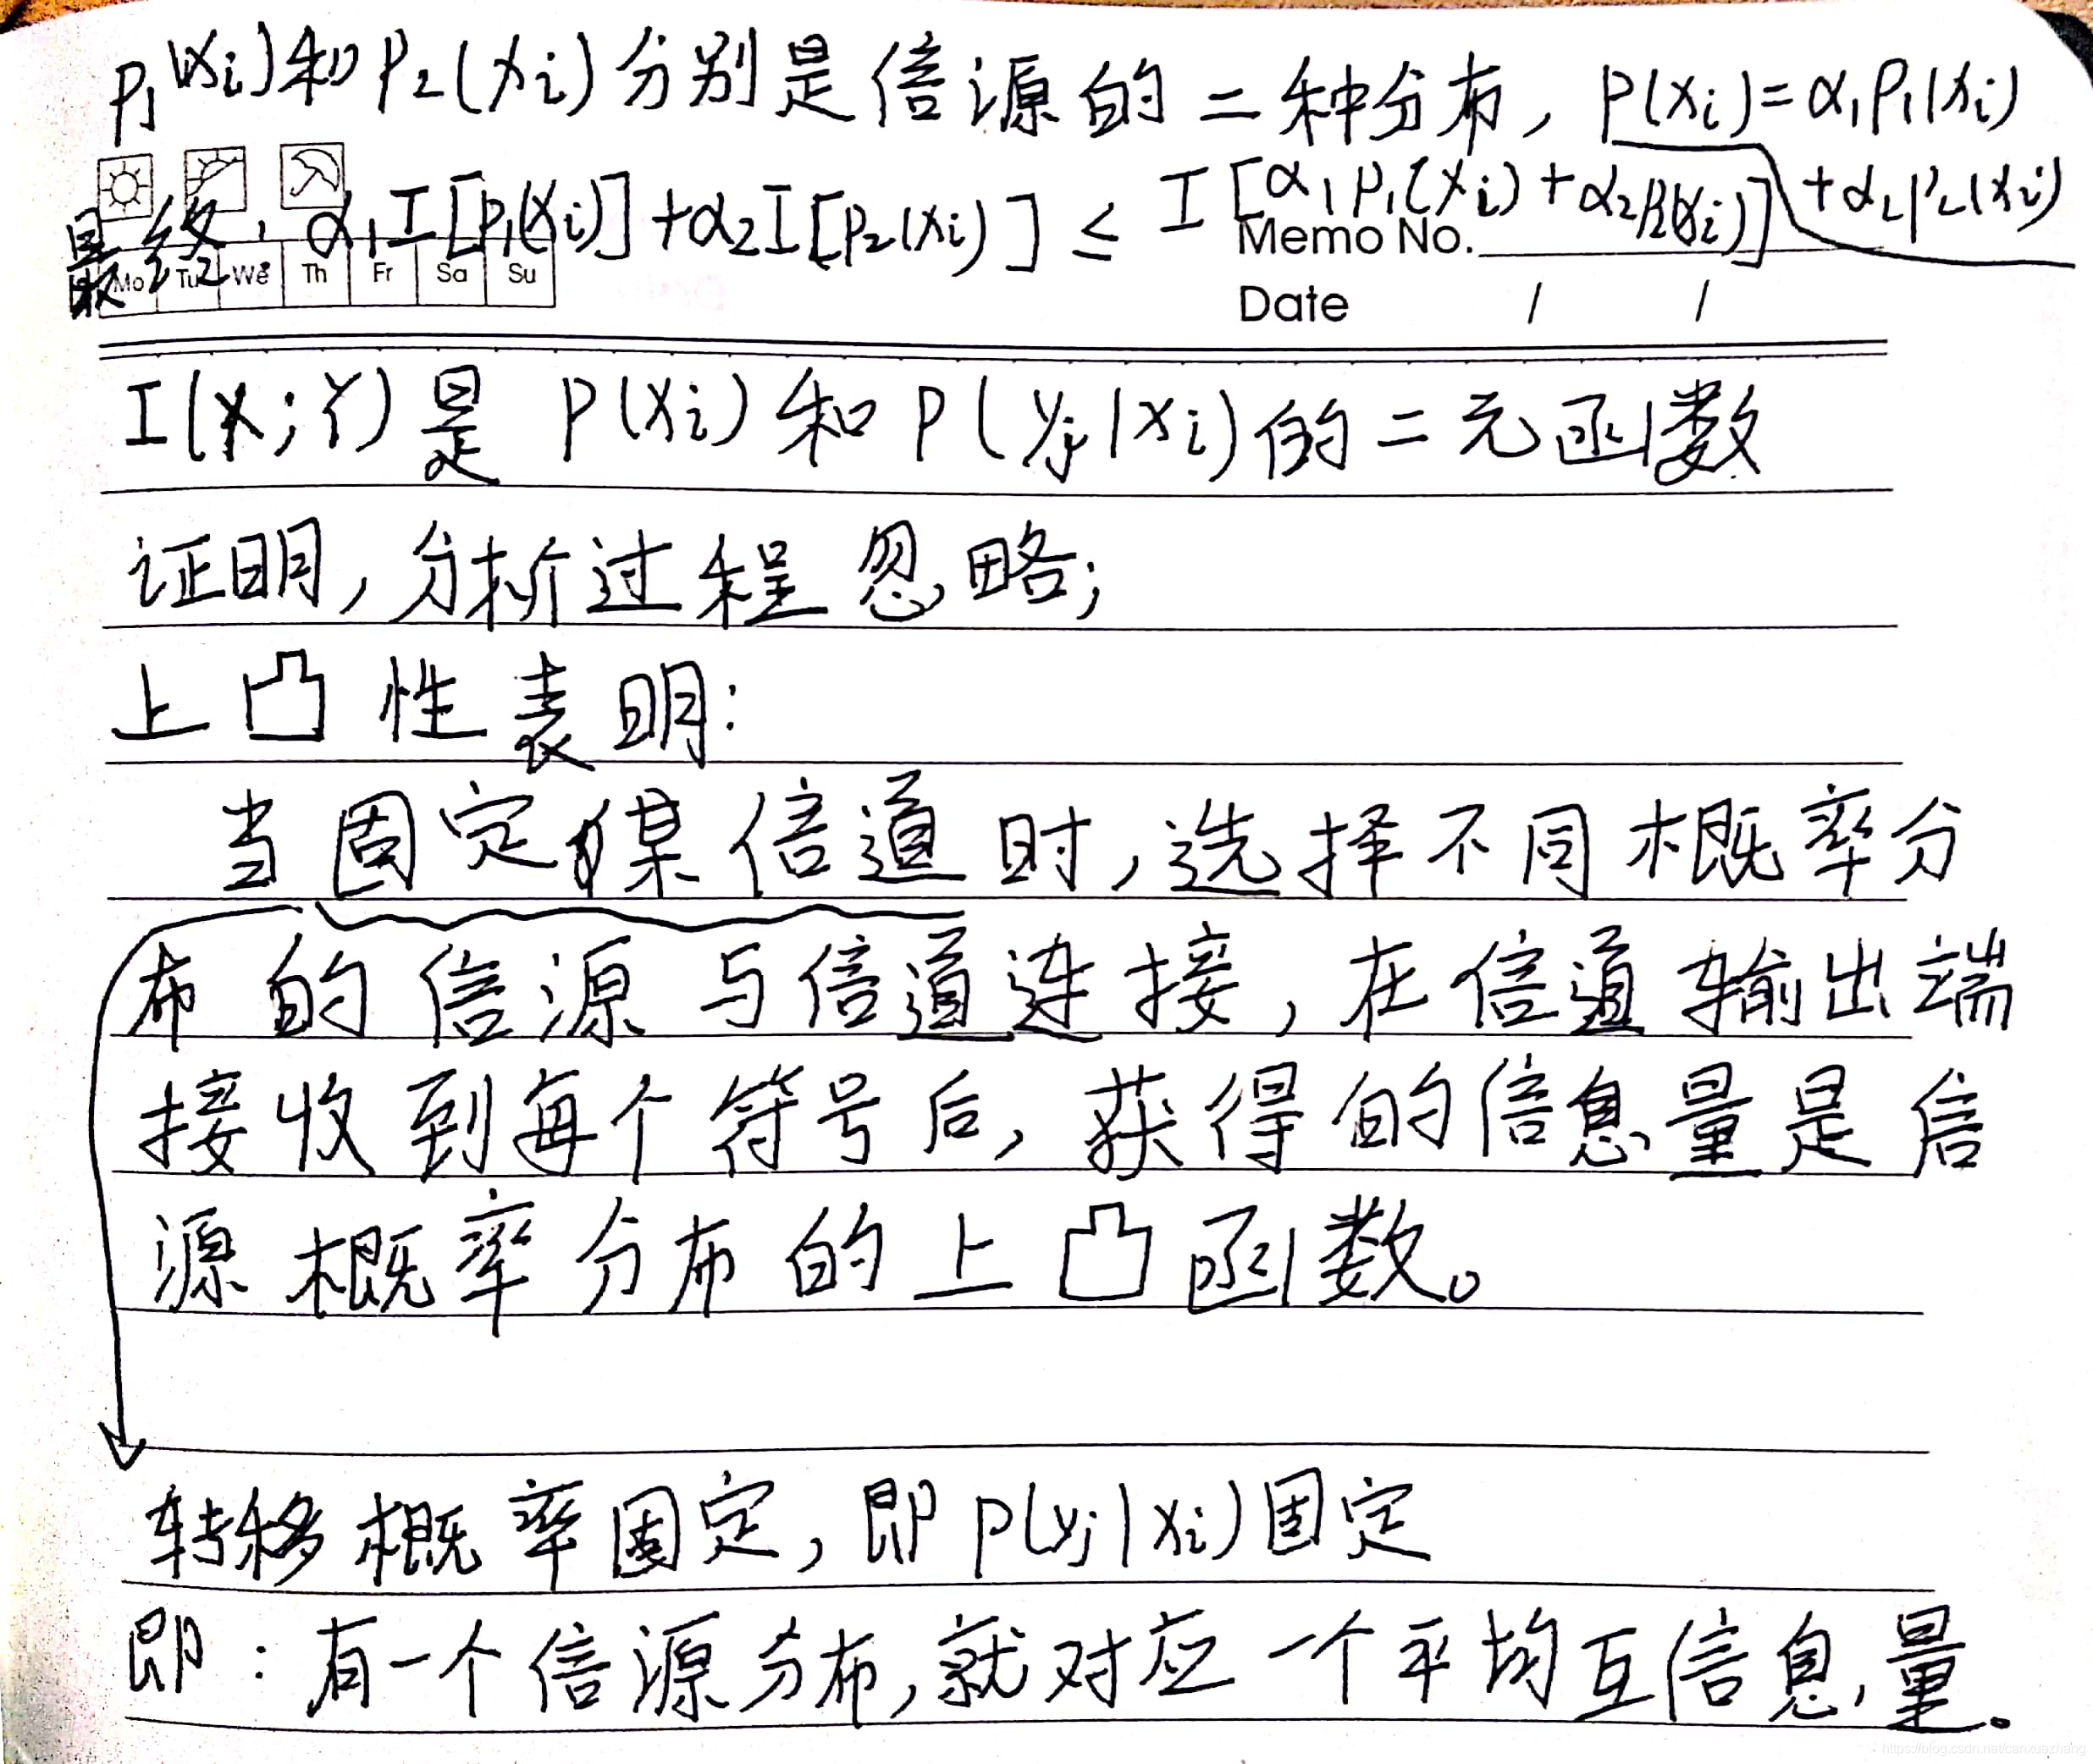 p₁(xi)和p₂(xi)分别是信源的二种分布, p(xi)=α₁p₁(xi)
+α₂p₂(xi)
最终, α₁I[p₁(xi)]+α₂I[p₂(xi)] ≤ I[α₁p₁(xi)+α₂p₂(xi)]
Memo No.
Mo Tu We Th Fr Sa Su
Date / /
I(X;Y)是 p(xi)和p(yj|xi)的二元函数
证明,分析过程忽略;
上凸性表明:
当固定某信道时,选择不同概率分
布的信源与信道连接,在信道输出端
接收到每个符号后,获得的信息量是信
源概率分布的上凸函数。
转移概率固定,即p(yj|xi)固定
即:有一个信源分布,就对应一个平均互信息量。
https://blog.csdn.net/canxuezhang